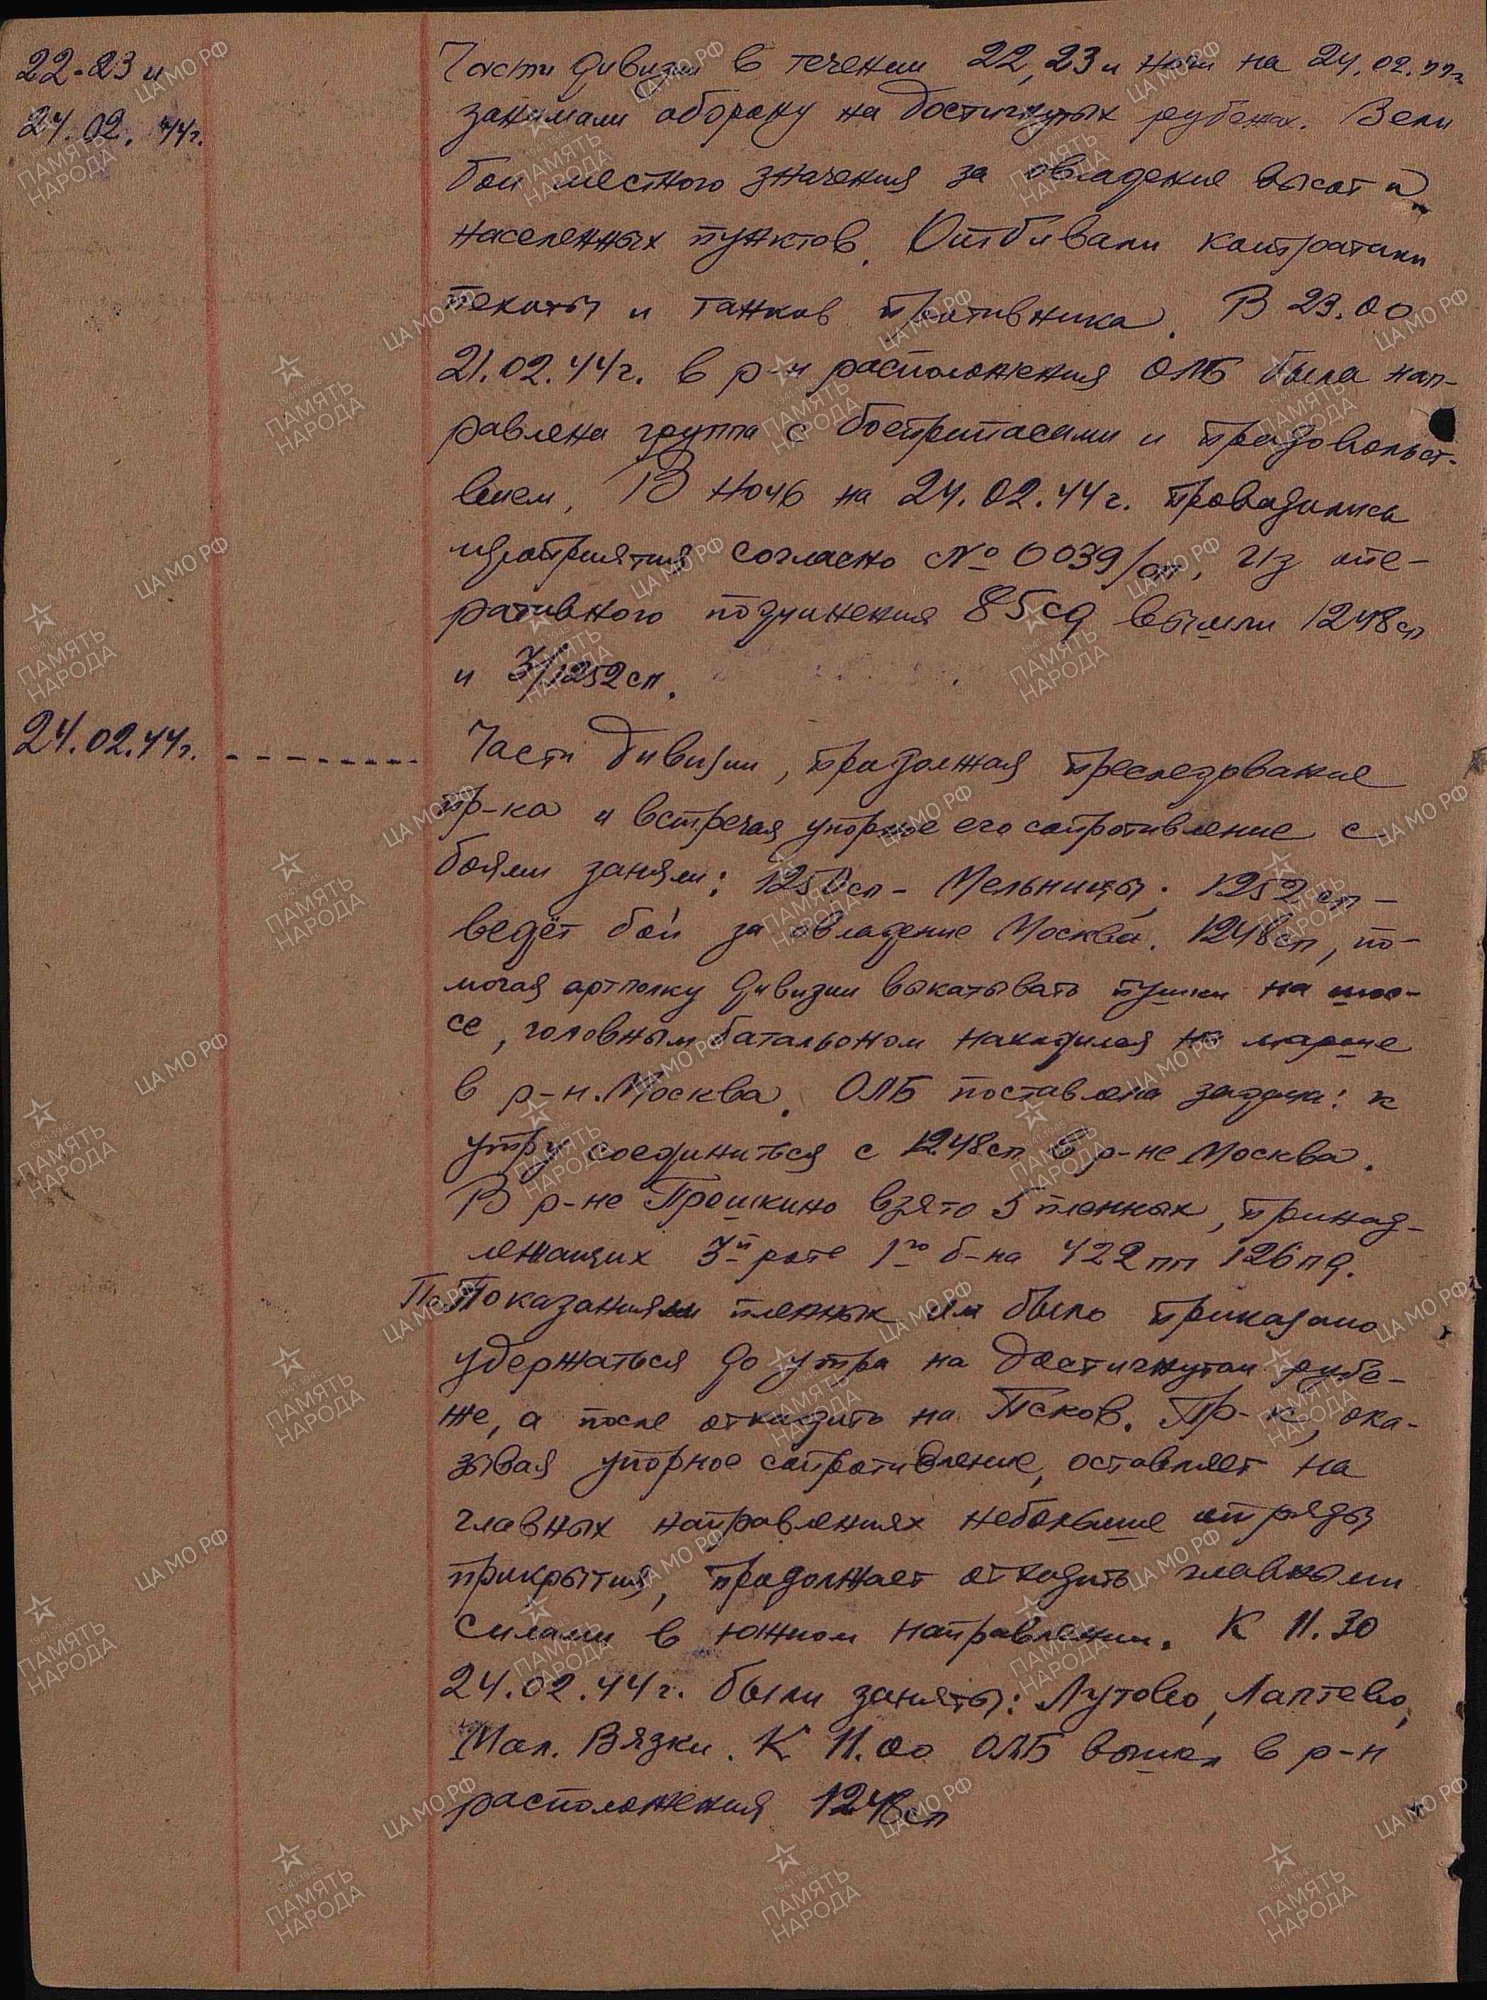 22-23 и
24.02.44г.
Части дивизии в течении 22, 23 и ночи на 24.02.44г
занимали оборону на достигнутых рубежах. Вели
бои местного значения за овладение высот и
населенных пунктов. Отбивали контратаки
пехоты и танков противника. В 23.00
21.02.44г. в р-н расположения ОЛБ была нап-
равлена группа с боеприпасами и продовольст-
вием. В ночь на 24.02.44г. проводились
мероприятия согласно № 0039/оп. Из опе-
ративного подчинения 85сд вышли 1248сп
и 3/1252сп.
24.02.44г. --------
Части дивизии, продолжая преследование
пр-ка и встречая упорное его сопротивление с
боями заняли: 1250сп - Мельницы; 1252сп -
ведёт бой за овладение Москва. 1248сп, по-
могая артполку дивизии выкатывать пушки на шос-
се, головным батальоном находился на марше
в р-н. Москва. ОЛБ поставлена задача: к
утру соединиться с 1248сп в р-не Москва.
В р-не Прошкино взято 5 пленных, принад-
лежащих 3й роте 1го б-на 422пп 126пд.
По Показаниям пленных им было приказано
удержаться до утра на достигнутом рубе-
же, а после отходить на Псков. Пр-к, ока-
зывая упорное сопротивление, оставляет на
главных направлениях небольшие отряды
прикрытия, продолжает отходить главными
силами в южном направлении. К 11.30
24.02.44г. были заняты: Лутово, Лаптево,
Мал. Вязки. К 11.00 ОЛБ вышел в р-н
расположения 1248сп